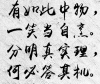 有如此中物，
一笑当自先。
分明真实理，
何必答其机。